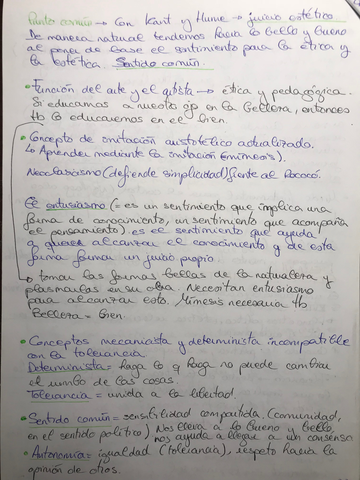 Punto común → Con Kant y Hume → juicio estético.
De manera natural tendemos hacia lo bello y bueno
al poner de base el sentimiento para la ética y
la estética. Sentido común.
• Función del arte y el artista → ética y pedagógica.
Si educamos a nuestro ojo en la belleza, entonces
tb lo educaremos en el bien.
• Concepto de imitación aristotélico actualizado.
↳ Aprender mediante la imitación (mímesis).
Neoclasicismo (defiende simplicidad) frente al Rococó.
El entusiasmo (= es un sentimiento que implica una
forma de conocimiento, un sentimiento que acompaña
el pensamiento). es el sentimiento que ayuda
a querer alcanzar el conocimiento y de esta
forma formar un juicio propio.
→ tomar las formas bellas de la naturaleza y
plasmarlas en su obra. Necesitan entusiasmo
para alcanzar esto. Mímesis necesaria tb
Belleza = Bien.
• Conceptos mecanicista y determinista incompatible
con la tolerancia
Determinista = haga lo q haga no puede cambiar
el rumbo de las cosas.
Tolerancia = unida a la libertad.
• Sentido común = sensibilidad compartida. (comunidad,
en el sentido político) Nos lleva a lo bueno y bello,
nos ayuda a llegar a un consenso.
• Autonomía = igualdad (tolerancia), respeto hacia la
opinión de otros.